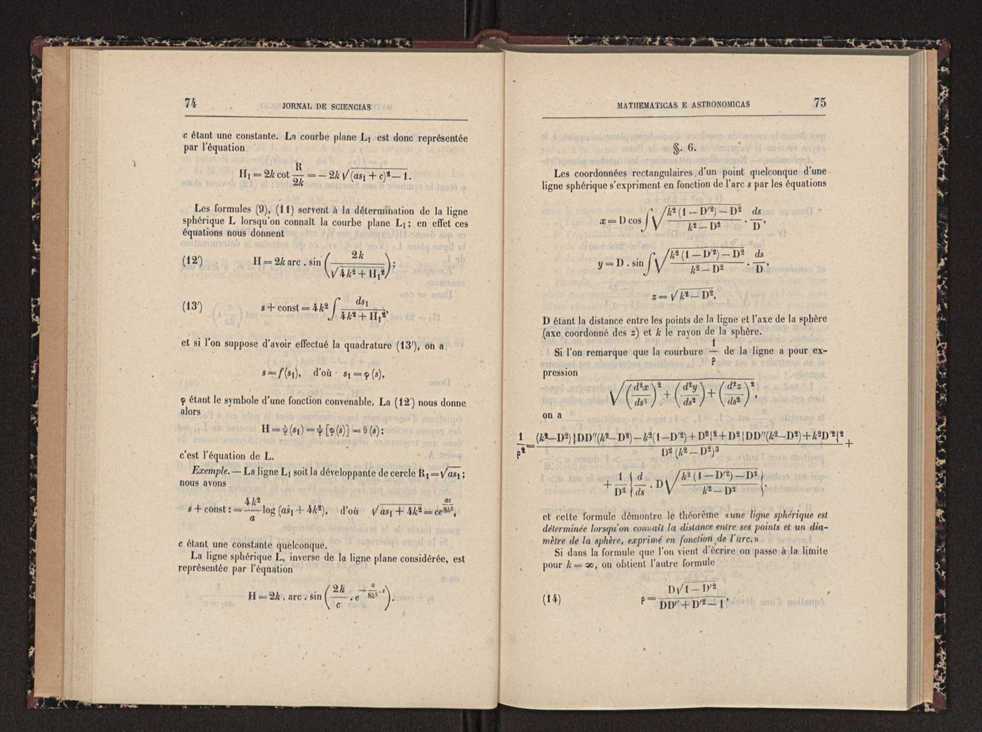 74 JORNAL DE SCIENCIAS
c étant une constante. La courbe plane L₁ est donc représentée
par l'équation
H₁ = 2k cot R/2k = − 2k √((as₁ + c)² − 1.
Les formules (9), (11) servent à la détermination de la ligne
sphérique L lorsqu'on connaît la courbe plane L₁; en effet ces
équations nous donnent
(12') H = 2k arc . sin (2k/√(4k² + H₁²));
(13') s + const = 4k² ∫ ds₁/(4k² + H₁²),
et si l'on suppose d'avoir effectué la quadrature (13'), on a
s = f(s₁), d'où s₁ = φ (s),
φ étant le symbole d'une fonction convenable. La (12') nous donne
alors
H = ψ (s₁) = ψ [φ (s)] = θ (s);
c'est l'équation de L.
Exemple. — La ligne L₁ soit la développante de cercle R₁ = √as₁;
nous avons
s + const: = 4k²/a log (as₁ + 4k²), d'où √(as₁ + 4k²) = ce^(as/8k²),
c étant une constante quelconque.
La ligne sphérique L, inverse de la ligne plane considérée, est
représentée par l'équation
H = 2k . arc . sin (2k/c . e^(−a/8k² · s)).
MATHEMATICAS E ASTRONOMICAS 75
§. 6.
Les coordonnées rectangulaires d'un point quelconque d'une
ligne sphérique s'expriment en fonction de l'arc s par les équations
x = D cos ∫ √((k² (1 − D'²) − D²)/(k² − D²)) . ds/D,
y = D . sin ∫ √((k² (1 − D'²) − D²)/(k² − D²)) . ds/D,
z = √(k² − D²),
D étant la distance entre les points de la ligne et l'axe de la sphère
(axe coordonné des z) et k le rayon de la sphère.
Si l'on remarque que la courbure 1/ρ de la ligne a pour ex-
pression
√((d²x/ds²)² + (d²y/ds²)² + (d²z/ds²)²),
on a
1/ρ² = ((k²−D²){DD''(k²−D²)−k²(1−D'²)+D²}²+D²{DD''(k²−D²)+k²D'²}²)/(D² (k²−D²)³) +
+ 1/D² {d/ds . D √((k² (1 − D'²) − D²)/(k² − D²))}².
et cette formule démontre le théorème «une ligne sphérique est
déterminée lorsqu'on connaît la distance entre ses points et un dia-
mètre de la sphère, exprimé en fonction de l'arc.»
Si dans la formule que l'on vient d'écrire on passe à la limite
pour k = ∞, on obtient l'autre formule
(14) ρ = D√(1 − D'²)/(DD'' + D'² − 1),